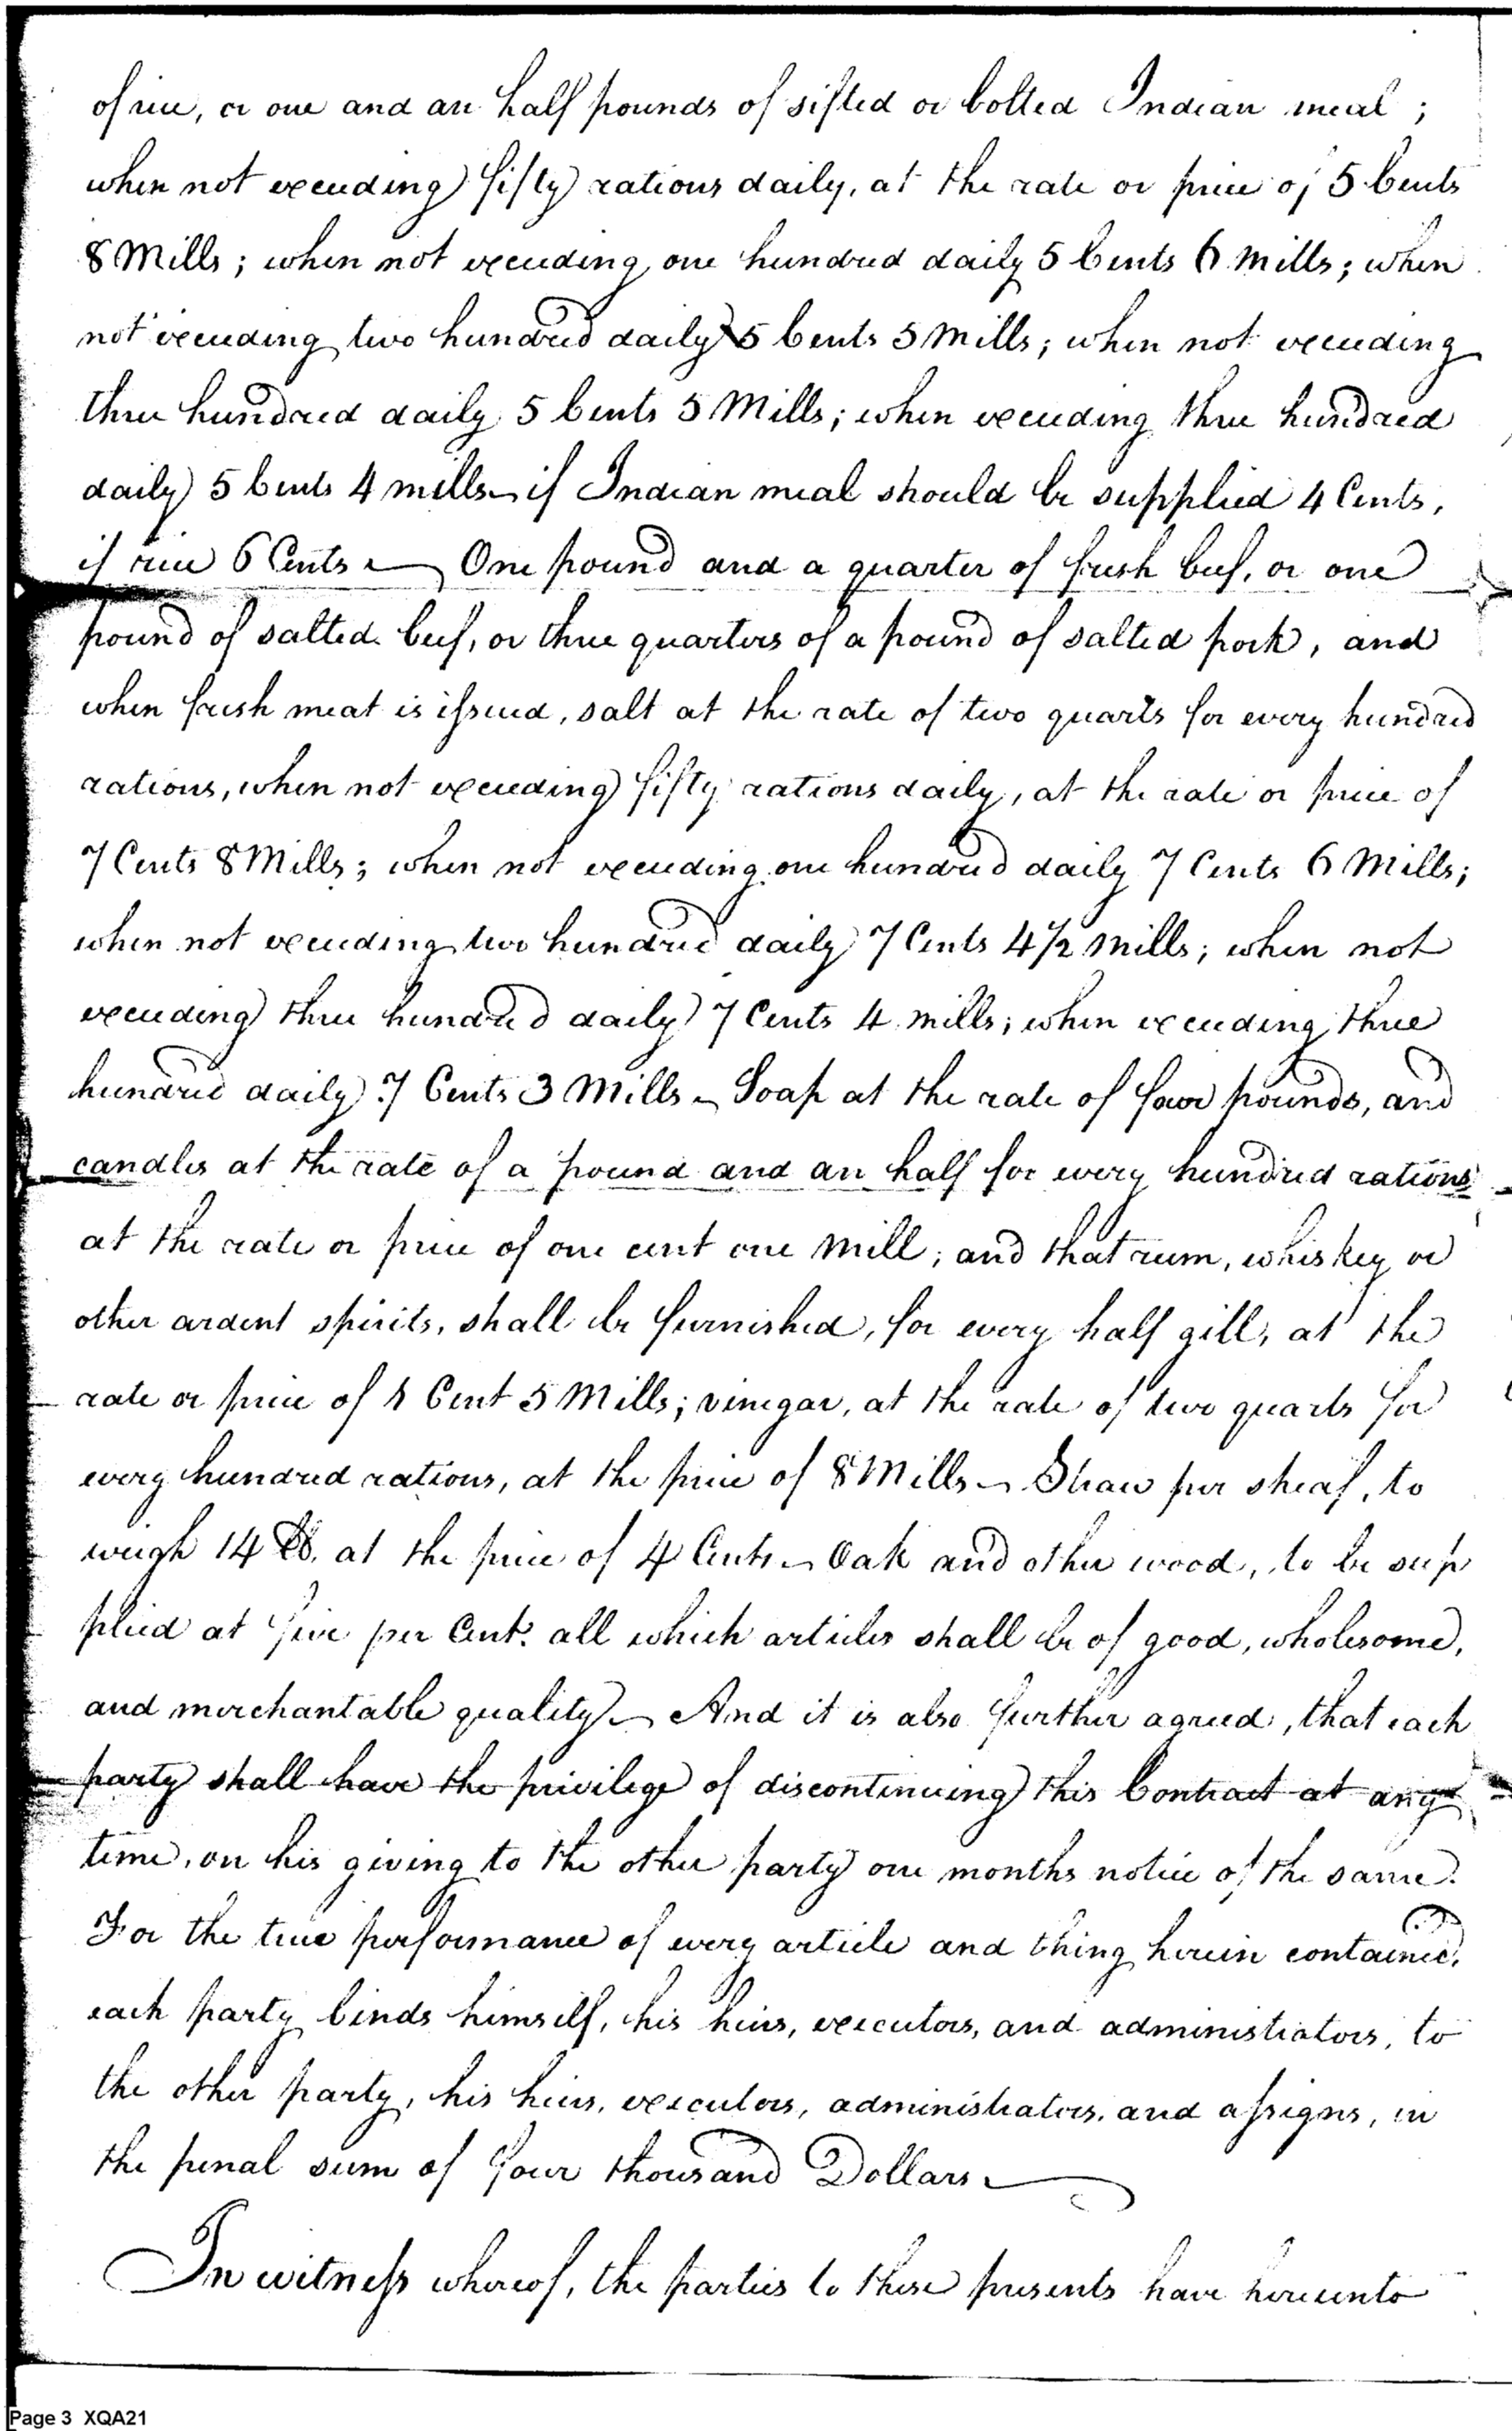 of rice, or one and an half pounds of sifted or bolted Indian meal;
when not exceeding fifty rations daily, at the rate or price of 5 Cents
8 Mills; when not exceeding one hundred daily 5 Cents 6 Mills; when
not exceeding two hundred daily 5 Cents 5 Mills; when not exceeding
three hundred daily 5 Cents 5 Mills; when exceeding three hundred
daily 5 Cents 4 mills – if Indian meal should be supplied 4 Cents,
if rice 6 Cents — One pound and a quarter of fresh beef, or one
pound of salted beef, or three quarters of a pound of salted pork, and
when fresh meat is issued, salt at the rate of two quarts for every hundred
rations, when not exceeding fifty rations daily, at the rate or price of
7 Cents 8 Mills; when not exceeding one hundred daily 7 Cents 6 Mills;
when not exceeding two hundred daily 7 Cents 4 1/2 Mills; when not
exceeding three hundred daily 7 Cents 4 mills; when exceeding three
hundred daily 7 Cents 3 Mills – Soap at the rate of four pounds, and
candles at the rate of a pound and an half for every hundred rations
at the rate or price of one cent one mill; and that rum, whiskey or
other ardent spirits, shall be furnished, for every half gill, at the
rate or price of 1 Cent 5 Mills; vinegar, at the rate of two quarts for
every hundred rations, at the price of 8 Mills – Straw per sheaf, to
weigh 14 lb. at the price of 4 Cents – Oak and other wood, to be sup
plied at five per Cent. all which articles shall be of good, wholesome,
and merchantable quality – And it is also further agreed, that each
party shall have the privilege of discontinuing this Contract at any
time, on his giving to the other party one months notice of the same.
For the true performance of every article and thing herein contained,
each party binds himself, his heirs, executors, and administrators, to
the other party, his heirs, executors, administrators, and assigns, in
the penal sum of four thousand Dollars —
In witness whereof, the parties to these presents have hereunto
Page 3 XQA21